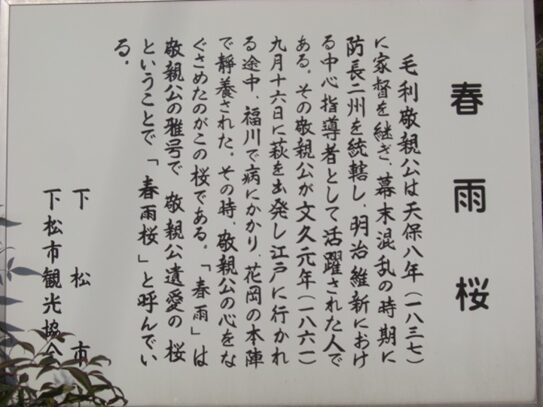 春雨桜
毛利敬親公は天保八年(一八三七)
に家督を継ぎ、幕末混乱の時期に
防長二州を統轄し、明治維新におけ
る中心指導者として活躍された人で
ある。その敬親公が文久元年(一八六一)
九月十六日に萩を出発し江戸に行かれ
る途中、福川で病にかかり、花岡の本陣
で静養された。その時、敬親公の心をな
ぐさめたのがこの桜である。「春雨」は
敬親公の雅号で、敬親公遺愛の桜
ということで「春雨桜」と呼んでい
る。
下松市
下松市観光協会